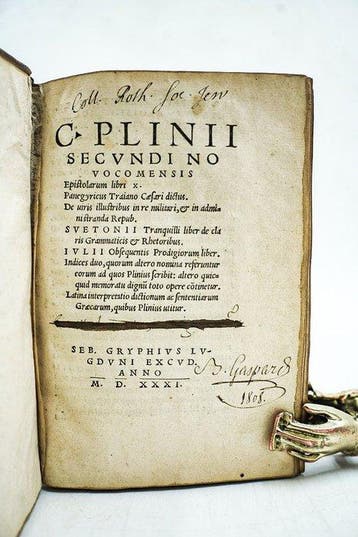 Coll. Roth. Soc. Jesu
C. PLINII
SECVNDI NO
VOCOMENSIS
Epistolarum libri X.
Panegyricus Traiano Cæsari dictus.
De uiris illustribus in re militari, & in admi
nistranda Repub.
SVETONII Tranquilli liber de cla
ris Grammaticis & Rhetoribus.
IVLII Obsequentis Prodigiorum liber.
Indices duo, quorum altero nomina referuntur
eorum ad quos Plinius scribit: altero quic-
quid memoratu dignũ toto opere cõtinetur.
Latina interpretatio dictionum ac sententiarum
Græcarum, quibus Plinius utitur.
SEB. GRYPHIVS LV-
GDVNI EXCVD.
ANNO
M. D. XXXI.
Gaspard
1808.